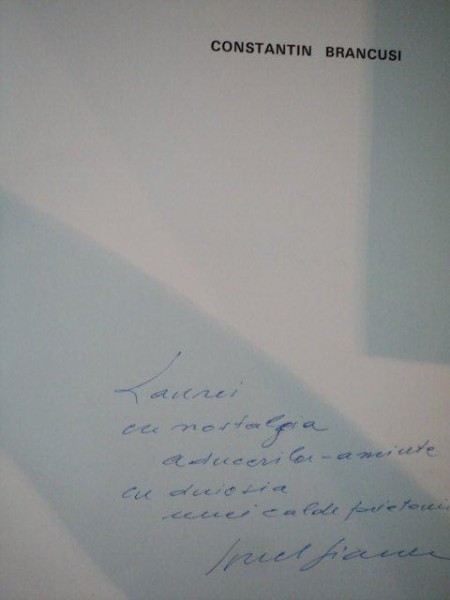 CONSTANTIN BRANCUSI
Laurei
cu nostalgia
aducerilor-aminte
cu duioșia
unei calde prietenii
Ionel Jianou